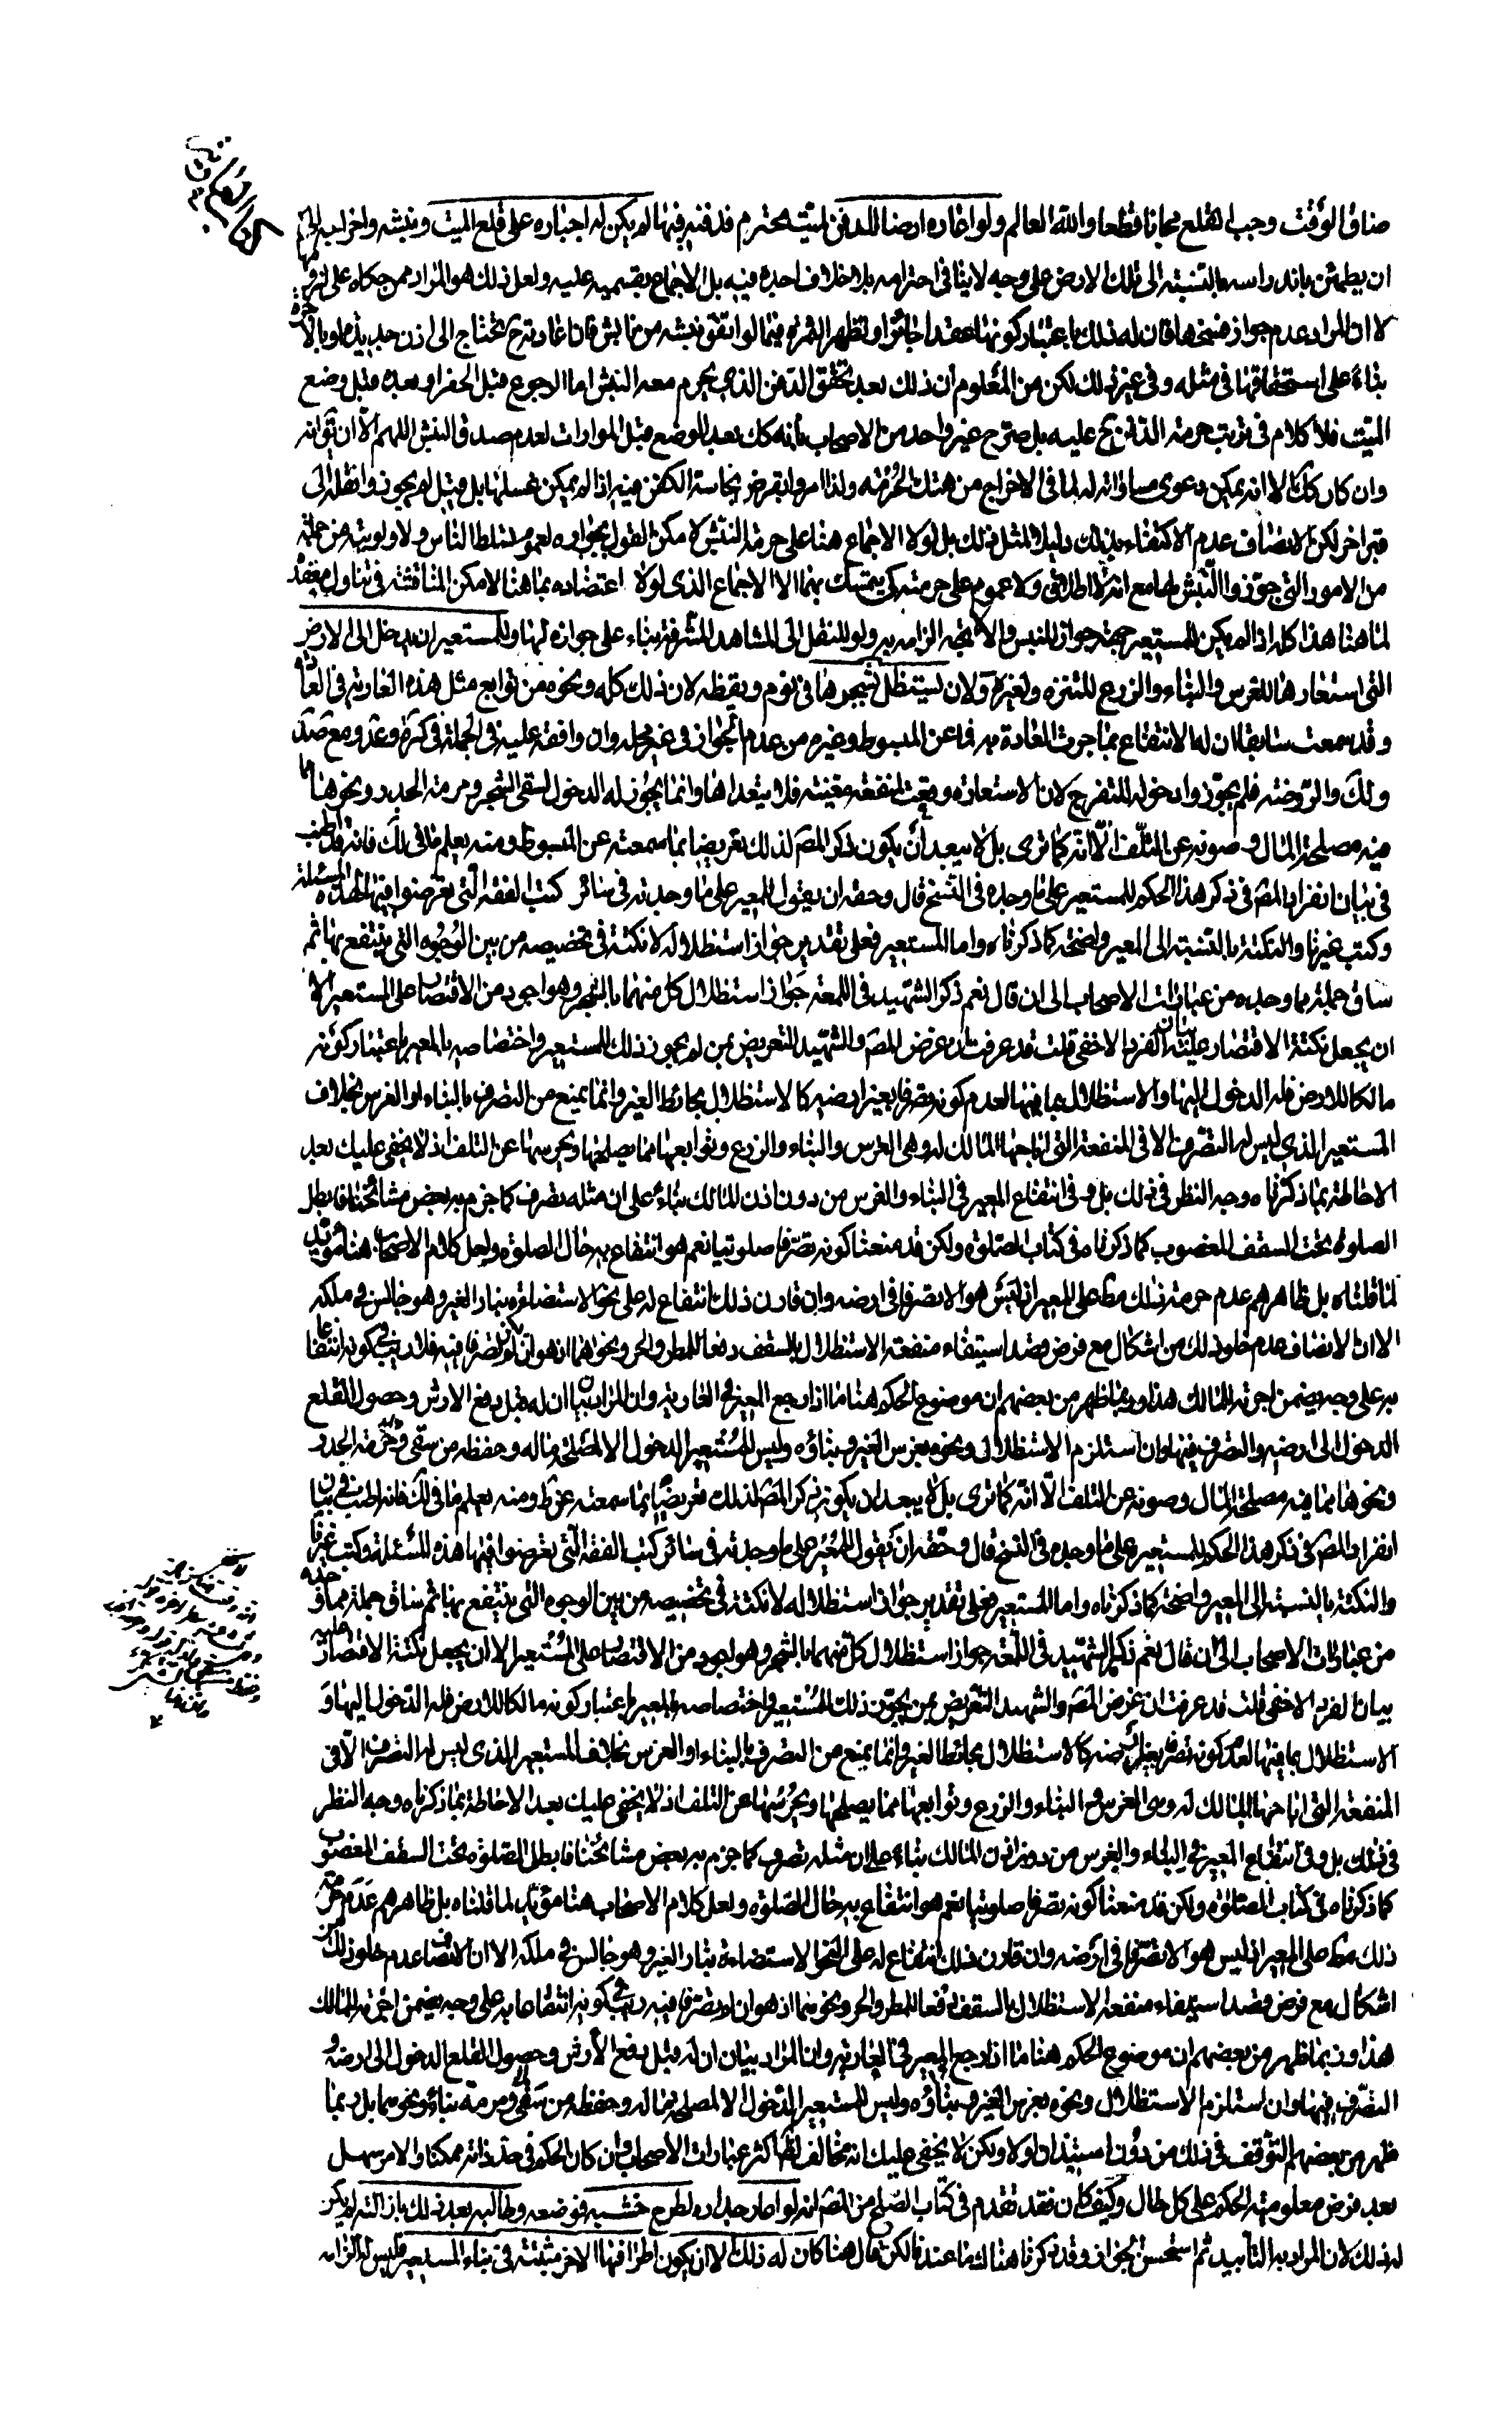 ضاق الوقت وجب القلع مجانا قطعا والله العالم ولو اعاره ارضا للدفن لميت محترم فدفنه فيها لم يكن له اجباره على قلع الميت ونبشه واخراجه
ان يطمئن باندراسه بالنسبة الى تلك الارض على وجه لا ينافى احترامه بلا خلاف اجده فيه بل الاجماع بقسميه عليه ولعل ذلك هو المراد ممن حكاه على
لا ان المراد عدم جواز فسخها فان له ذلك باعتبار كونها عقدا جائزا وتظهر الثمرة فيما لو اتفق نبشه من نابش فان اعادته ح تحتاج الى اذن جديد او بالاجرة
بناء على استحقاقها فى مثله وفى غير ذلك لكن من المعلوم ان ذلك بعد تحقق الدفن الذى يحرم معه النبش اما الرجوع قبل الحفر او بعده قبل وضع
الميت فلا كلام فى ترتب حرمة الدفن ح عليه بل صرح غير واحد من الاصحاب بانه كك بعد الوضع قبل المواراة لعدم صدق النبش اللهم الا ان يق انه
وان كان كك الا انه يمكن دعوى مساواته له لما فى الاخراج من هتك الحرمة ولذا امروا بقرض نجاسة الكفن فيه اذا لم يمكن غسلها بل قيل لم يجوزوا نقله الى
قبر اخر لكن الانصاف عدم الاكتفاء بذلك دليلا لمثل ذلك بل لولا الاجماع هنا على حرمة النبش لامكن القول بجوازه لعموم تسلط الناس ولاولويته من جملة
من الامور التى جوزوا النبش لها مع انه لا اطلاق ولا عموم على حرمته كى يتمسك بهما الا الاجماع الذى لولا اعتضاده بما هنا لامكن المناقشة فى تناول معقده
لما هنا هذا كله اذا لم يكن للمستعير جهة جواز للنبش والا اتجه الزامه به ولو للنقل الى المشاهد المشرفة بناء على جوازه لها وللمستعير ان يدخل الى الارض
التى استعارها للغرس والبناء والزرع للتنزه ولغيره ولان يستظل بشجرها فى نوم ويقظة لان ذلك كله ونحوه من توابع مثل هذه العارية فى العادة
وقد سمعت سابقا ان له الانتفاع بما جرت العادة به فما عن المبسوط وغيره من عدم الجواز فى غير محله وان وافقه عليه فى الجملة فى كرة وعد ومع صد
ولك والروضة فلم يجوزوا دخوله للتفرج لان الاستعارة وقعت لمنفعة معينة فلا يتعداها وانما يجوز له الدخول لسقى الشجر ومرمة الجدر ونحوها مما
فيه مصلحة المال وصونه عن التلف الا انه كما ترى بل لا يبعد ان يكون ذكر المص لذلك تعريضا بما سمعته عن المبسوط ومنه يعلم ما فى لك فانه قد اطنب
فى بيان انفراد المص فى ذكر هذا الحكم للمستعير على ما وجده فى النسخ قال وحقه ان يقول للمعير على ما وجدته فى سائر كتب الفقه التى تعرضوا فيها لهذه المسئلة
وكتب غيرنا والنكتة بالنسبة الى المعير واضحة كما ذكرناه واما المستعير فعلى تقدير جواز استظلاله لا نكتة فى تخصيصه من بين الوجوه التى ينتفع بها ثم
ساق جملة مما وجده من عبارات الاصحاب الى ان قال نعم ذكر الشهيد فى اللمعة جواز استظلال كل منهما بالشجر وهو اجود من الاقتصار على المستعير الا
ان يجعل نكتة الاقتصار عليه بيان الفرد الاخفى قلت قد عرفت ان غرض المص والشهيد التعريض بمن لم يجوز ذلك للمستعير واختصاصه بالمعير باعتبار كونه
مالكا للارض فله الدخول اليها والاستظلال بما فيها لعدم كونه تصرفا بغير ارضه كالاستظلال بحائط الغير وانما يمنع من التصرف بالبناء او الغرس بخلاف
المستعير الذى ليس له التصرف الا فى المنفعة التى اباحها المالك له وهى الغرس والبناء والزرع وتوابعها مما يصلحها ويحرسها عن التلف اذ لا يخفى عليك بعد
الاحاطة بما ذكرناه وجه النظر فى ذلك بل وفى انتفاع المعير فى البناء والغرس من دون اذن المالك بناء على ان مثله تصرف كما جزم به بعض مشائخنا فابطل
الصلوة تحت السقف المغصوب كما ذكرناه فى كتاب الصلوة ولكن قد منعنا كونه تصرفا صلوتيا نعم هو انتفاع به حال الصلوة ولعل كلام الاصحاب هنا مؤيد
لما قلناه بل ظاهرهم عدم حرمة ذلك مط على المعير اذ ليس هو الا تصرفا فى ارضه وان قارن ذلك انتفاع له على نحو الاستضاءة بنار الغير وهو جالس فى ملكه
الا ان الانصاف عدم خلو ذلك من اشكال مع فرض قصد استيفاء منفعة الاستظلال بالسقف دفعا للمطر والحر ونحوهما اذ هو ان لم يكن تصرفا فيه فلا ريب فى كونه انتفاعا
به على وجه يضمن اجرته للمالك هذا وربما ظهر من بعضهم ان موضوع الحكم هنا ما اذا رجع المعير فى العارية وان المراد بيان ان له قبل دفع الارش وحصول القلع
الدخول الى ارضه والتصرف فيها وان استلزم الاستظلال ونحوه بغرس الغير وبنائه وليس للمستعير الدخول الا لمصلحة ماله وحفظه من سقى ومرمة الجدر
ونحوها مما فيه مصلحة المال وصونه عن التلف الا انه كما ترى بل لا يبعد ان يكون ذكر المص لذلك تعريضا بما سمعته عن ط ومنه يعلم ما فى لك فانه اطنب فى بيان
انفراد المص فى ذكر هذا الحكم للمستعير على ما وجده فى النسخ قال وحقه ان يقول للمعير على ما وجدته فى سائر كتب الفقه التى تعرضوا فيها هذه المسئلة وكتب غيرنا
والنكتة بالنسبة الى المعير واضحة كما ذكرناه واما المستعير فعلى تقدير جواز استظلاله لا نكتة فى تخصيصه من بين الوجوه التى ينتفع بها ثم ساق جملة مما وجده
من عبارات الاصحاب الى ان قال نعم ذكر الشهيد فى اللمعة جواز استظلال كل منهما بالشجر وهو اجود من الاقتصار على المستعير الا ان يجعل نكتة الاقتصار عليه
بيان الفرد الاخفى قلت قد عرفت ان غرض المص والشهيد التعريض بمن يجوز ذلك للمستعير واختصاصه بالمعير باعتبار كونه مالكا للارض فله الدخول اليها و
الاستظلال بما فيها لعدم كونه تصرفا بغير ارضه كالاستظلال بحائط الغير وانما يمنع من التصرف بالبناء او الغرس بخلاف المستعير الذى ليس له التصرف الا فى
المنفعة التى اباحها المالك له وهى الغرس والبناء والزرع وتوابعها مما يصلحها ويحرسها عن التلف اذ لا يخفى عليك بعد الاحاطة بما ذكرناه وجه النظر
فى ذلك بل وفى انتفاع المعير فى البناء والغرس من دون اذن المالك بناء على ان مثله تصرف كما جزم به بعض مشائخنا فابطل الصلوة تحت السقف المغصوب
كما ذكرناه فى كتاب الصلوة ولكن قد منعنا كونه تصرفا صلوتيا نعم هو انتفاع به حال الصلوة ولعل كلام الاصحاب هنا مؤيد لما قلناه بل ظاهرهم عدم حرمة
ذلك مط على المعير اذ ليس هو الا تصرفا فى ارضه وان قارن ذلك انتفاع له على النحو الاستضاءة بنار الغير وهو جالس فى ملكه الا ان الانصاف عدم خلو ذلك من
اشكال مع فرض قصد استيفاء منفعة الاستظلال بالسقف دفعا للمطر والحر ونحوهما اذ هو ان لم تصرفا فيه ريب فى كونه انتفاعا به على وجه يضمن اجرته للمالك
هذا وربما ظهر من بعضهم ان موضوع الحكم هنا ما اذا رجع المعير فى العارية وان المراد بيان ان له قبل دفع الارش وحصول القلع الدخول الى ارضه و
التصرف فيها وان استلزم الاستظلال ونحوه بغرس الغير وبنائه وليس للمستعير الدخول الا لمصلحة ماله وحفظه من سقى ومرمة بناء ونحوهما بل ربما
ظهر من بعضهم التوقف فى ذلك من دون استيذان اولا ولكن لا يخفى عليك انه مخالف لظ اكثر عبارات الاصحاب وان كان الحكم فى حد ذاته ممكنا والامر سهل
بعد فرض معلومية الحكم على كل حال وكيف كان فقد تقدم فى كتاب الصلح من المص انه لو اعار جداره لطرح خشبة فوضعه وطالبه بعد ذلك بازالته لم يكن
له ذلك لان المراد به التأبيد ثم استحسن الجواز وقد ذكرنا هناك ما عندنا لكن قال هنا كان له ذلك الا ان يكون اطرافها الاخر مثبتة فى بناء المستعير فليس له الزامه